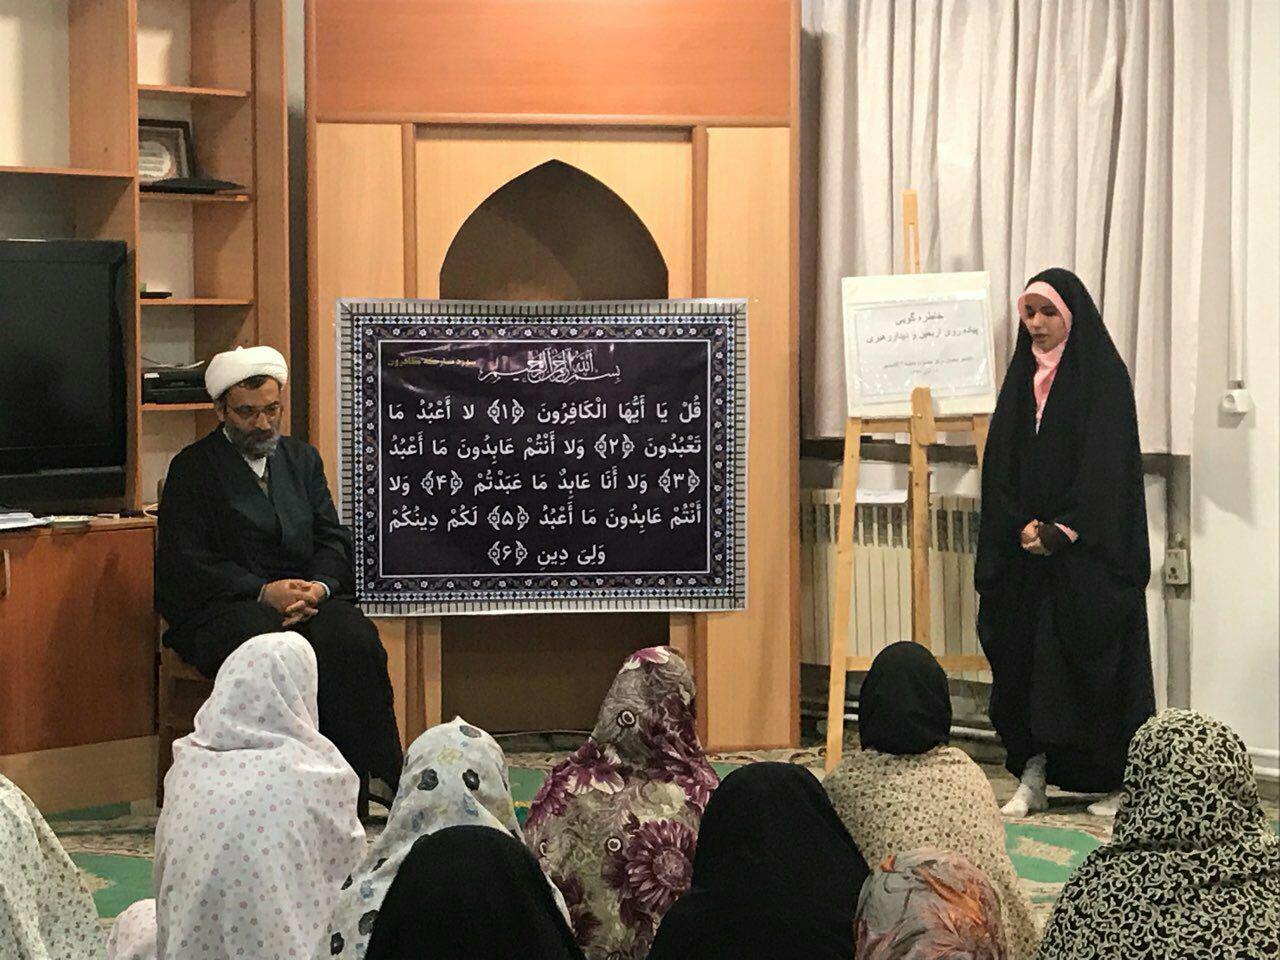 سوره مبارکه کافرون
بسم الله الرحمن الرحیم
قُلْ يَا أَيُّهَا الْكَافِرُونَ ﴿۱﴾ لا أَعْبُدُ مَا
تَعْبُدُونَ ﴿۲﴾ وَلا أَنْتُمْ عَابِدُونَ مَا أَعْبُدُ
﴿۳﴾ وَلا أَنَا عَابِدٌ مَا عَبَدْتُمْ ﴿۴﴾ وَلا
أَنْتُمْ عَابِدُونَ مَا أَعْبُدُ ﴿۵﴾ لَكُمْ دِينُكُمْ
وَلِيَ دِينِ ﴿۶﴾
خاطره گویی
پیاده روی اربعین و دیدار رهبری